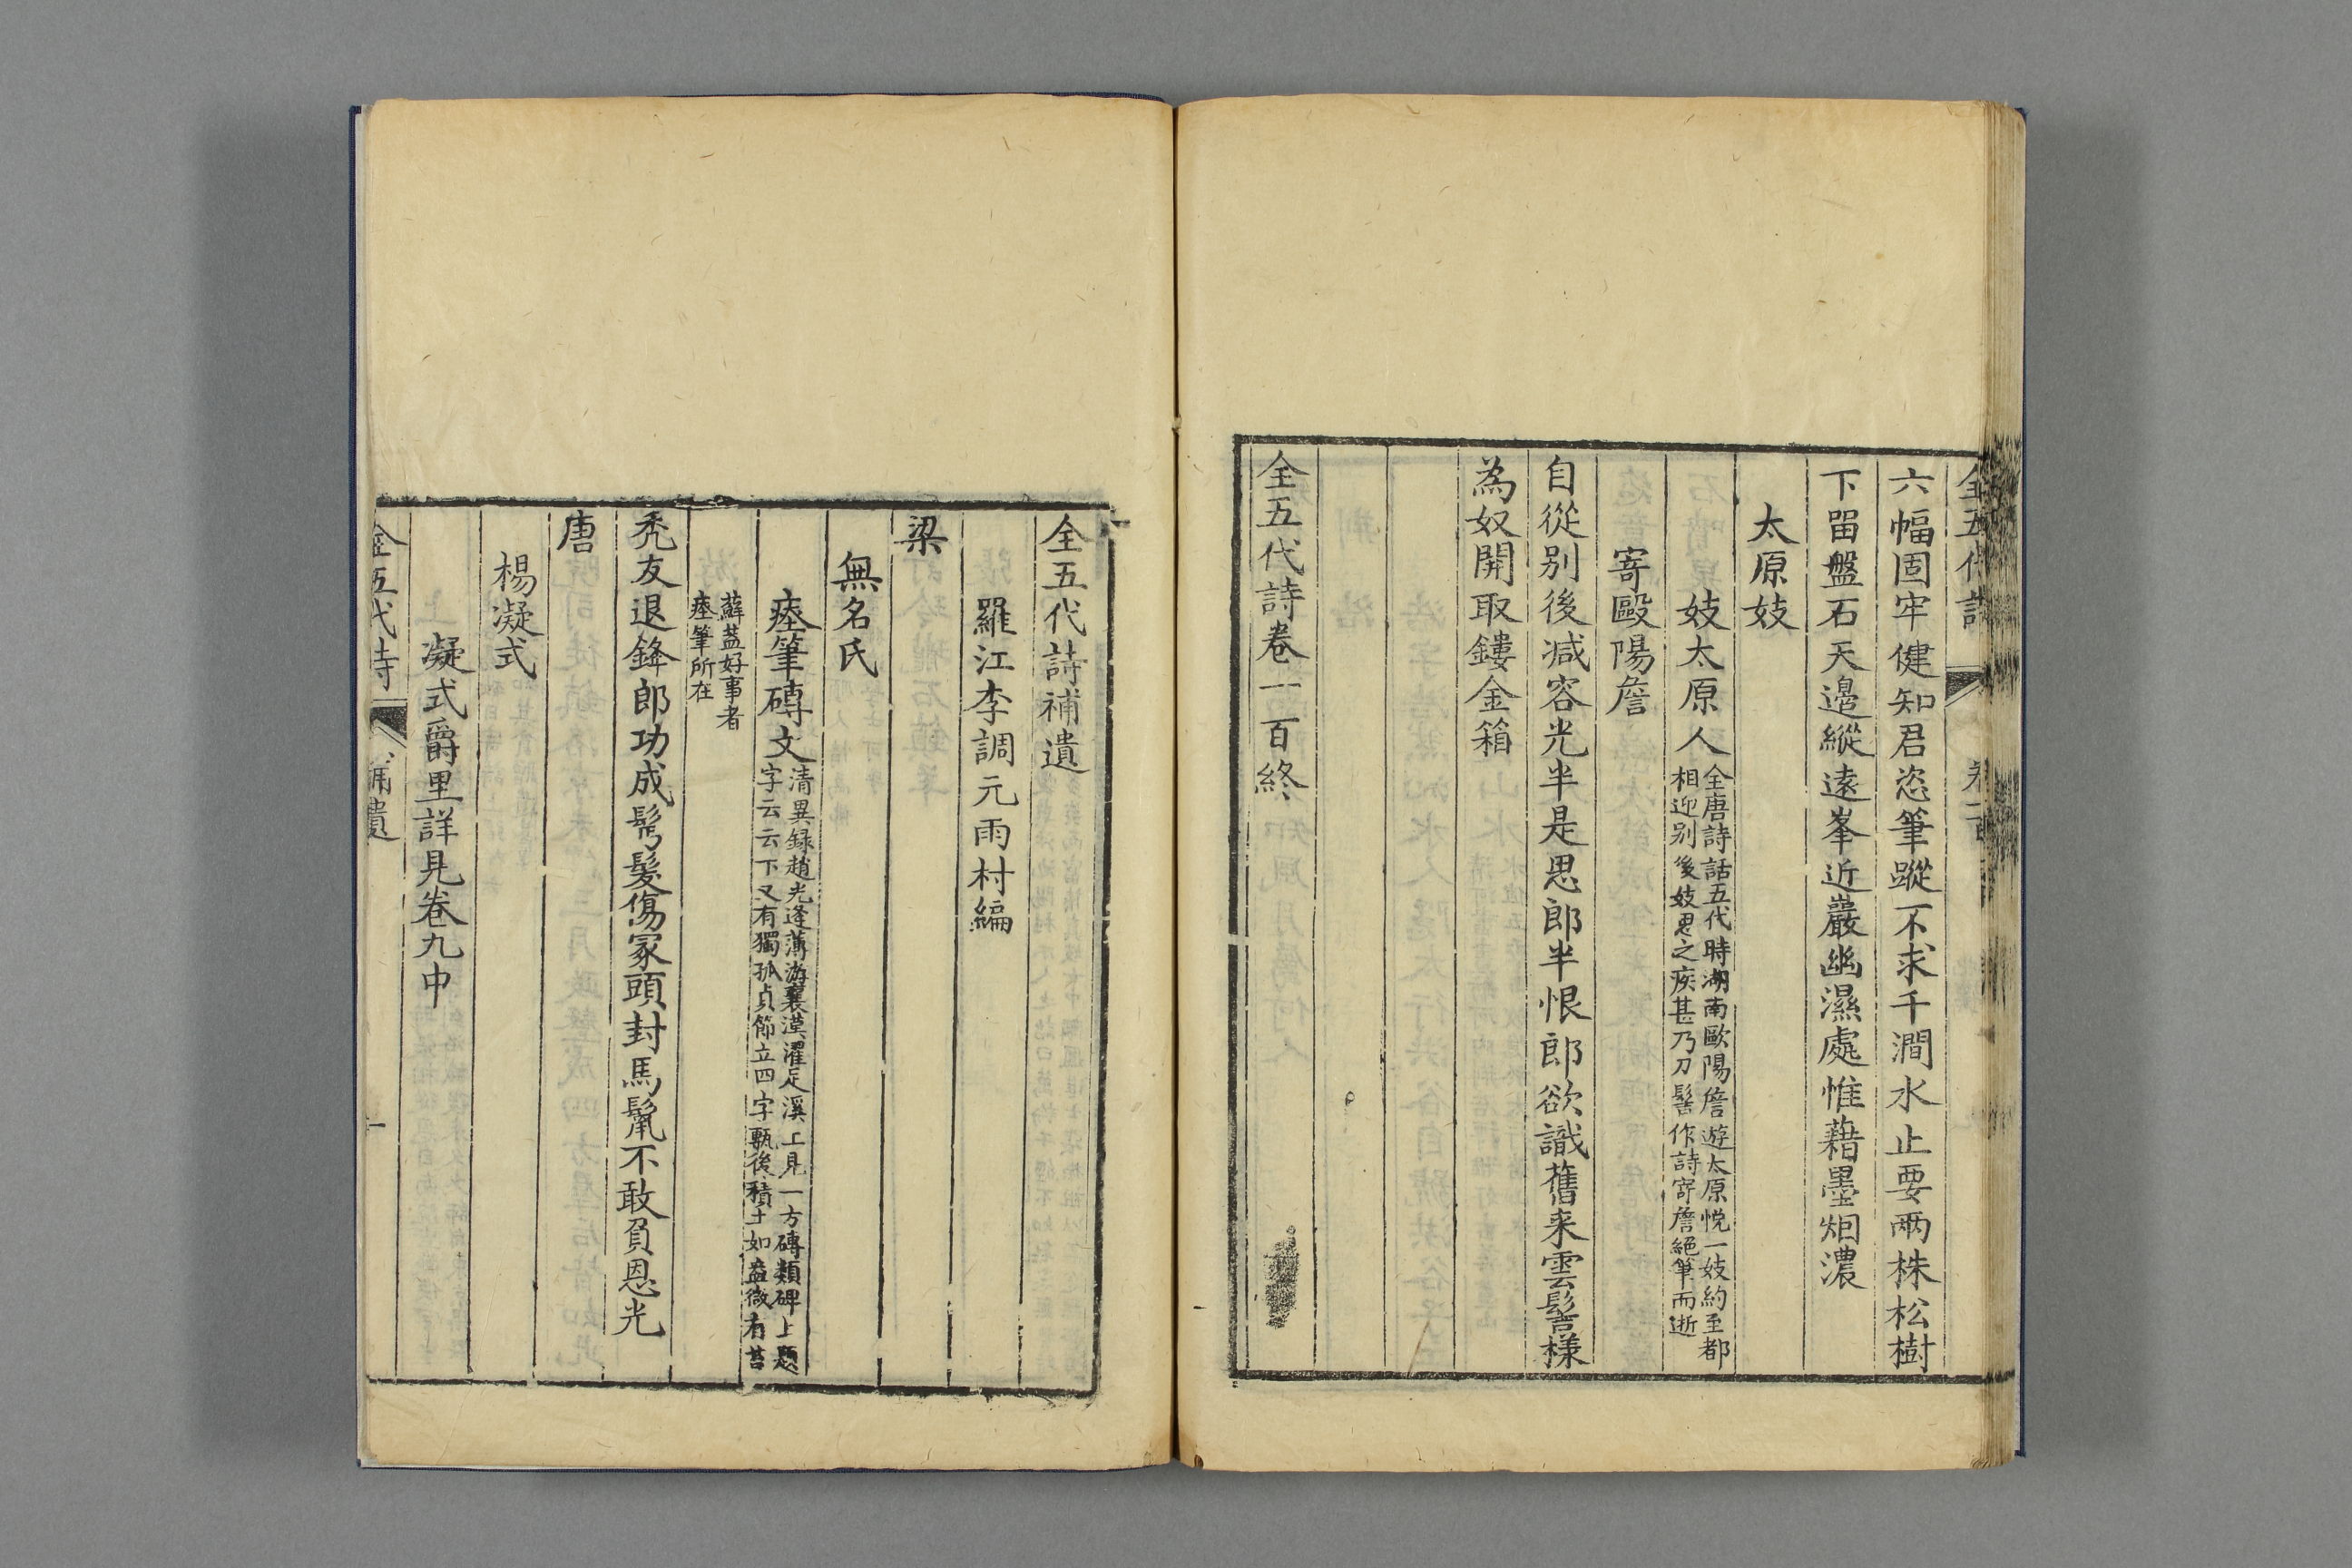 全五代詩
卷一百
六幅固牢健知君恣筆蹤不求千澗水止要兩株松樹
下畱盤石天邉縱遠峯近巖幽濕處惟藉墨烟濃
太原妓
妓太原人
全唐詩話五代時湖南歐陽詹遊太原悅一妓約至都
相迎別後妓思之疾甚乃刀髻作詩寄詹絕筆而逝
寄歐陽詹
自從別後減容光半是思郎半恨郎欲識舊来雲髻様
為奴開取鏤金箱
全五代詩卷一百終
全五代詩補遺
羅江李調元雨村編
梁
無名氏
瘞筆磚文
清異録趙光逢薄游襄漢濯足溪上見一方磚類碑上題
字云云下又有獨孤貞節立四字甎後積土如盎微有苔
蘚葢好事者
瘞筆所在
禿友退鋒郎功成鬢髮傷冢頭封馬鬛不敢負恩光
唐
楊凝式
凝式爵里詳見卷九中
全五代詩
補遺
一